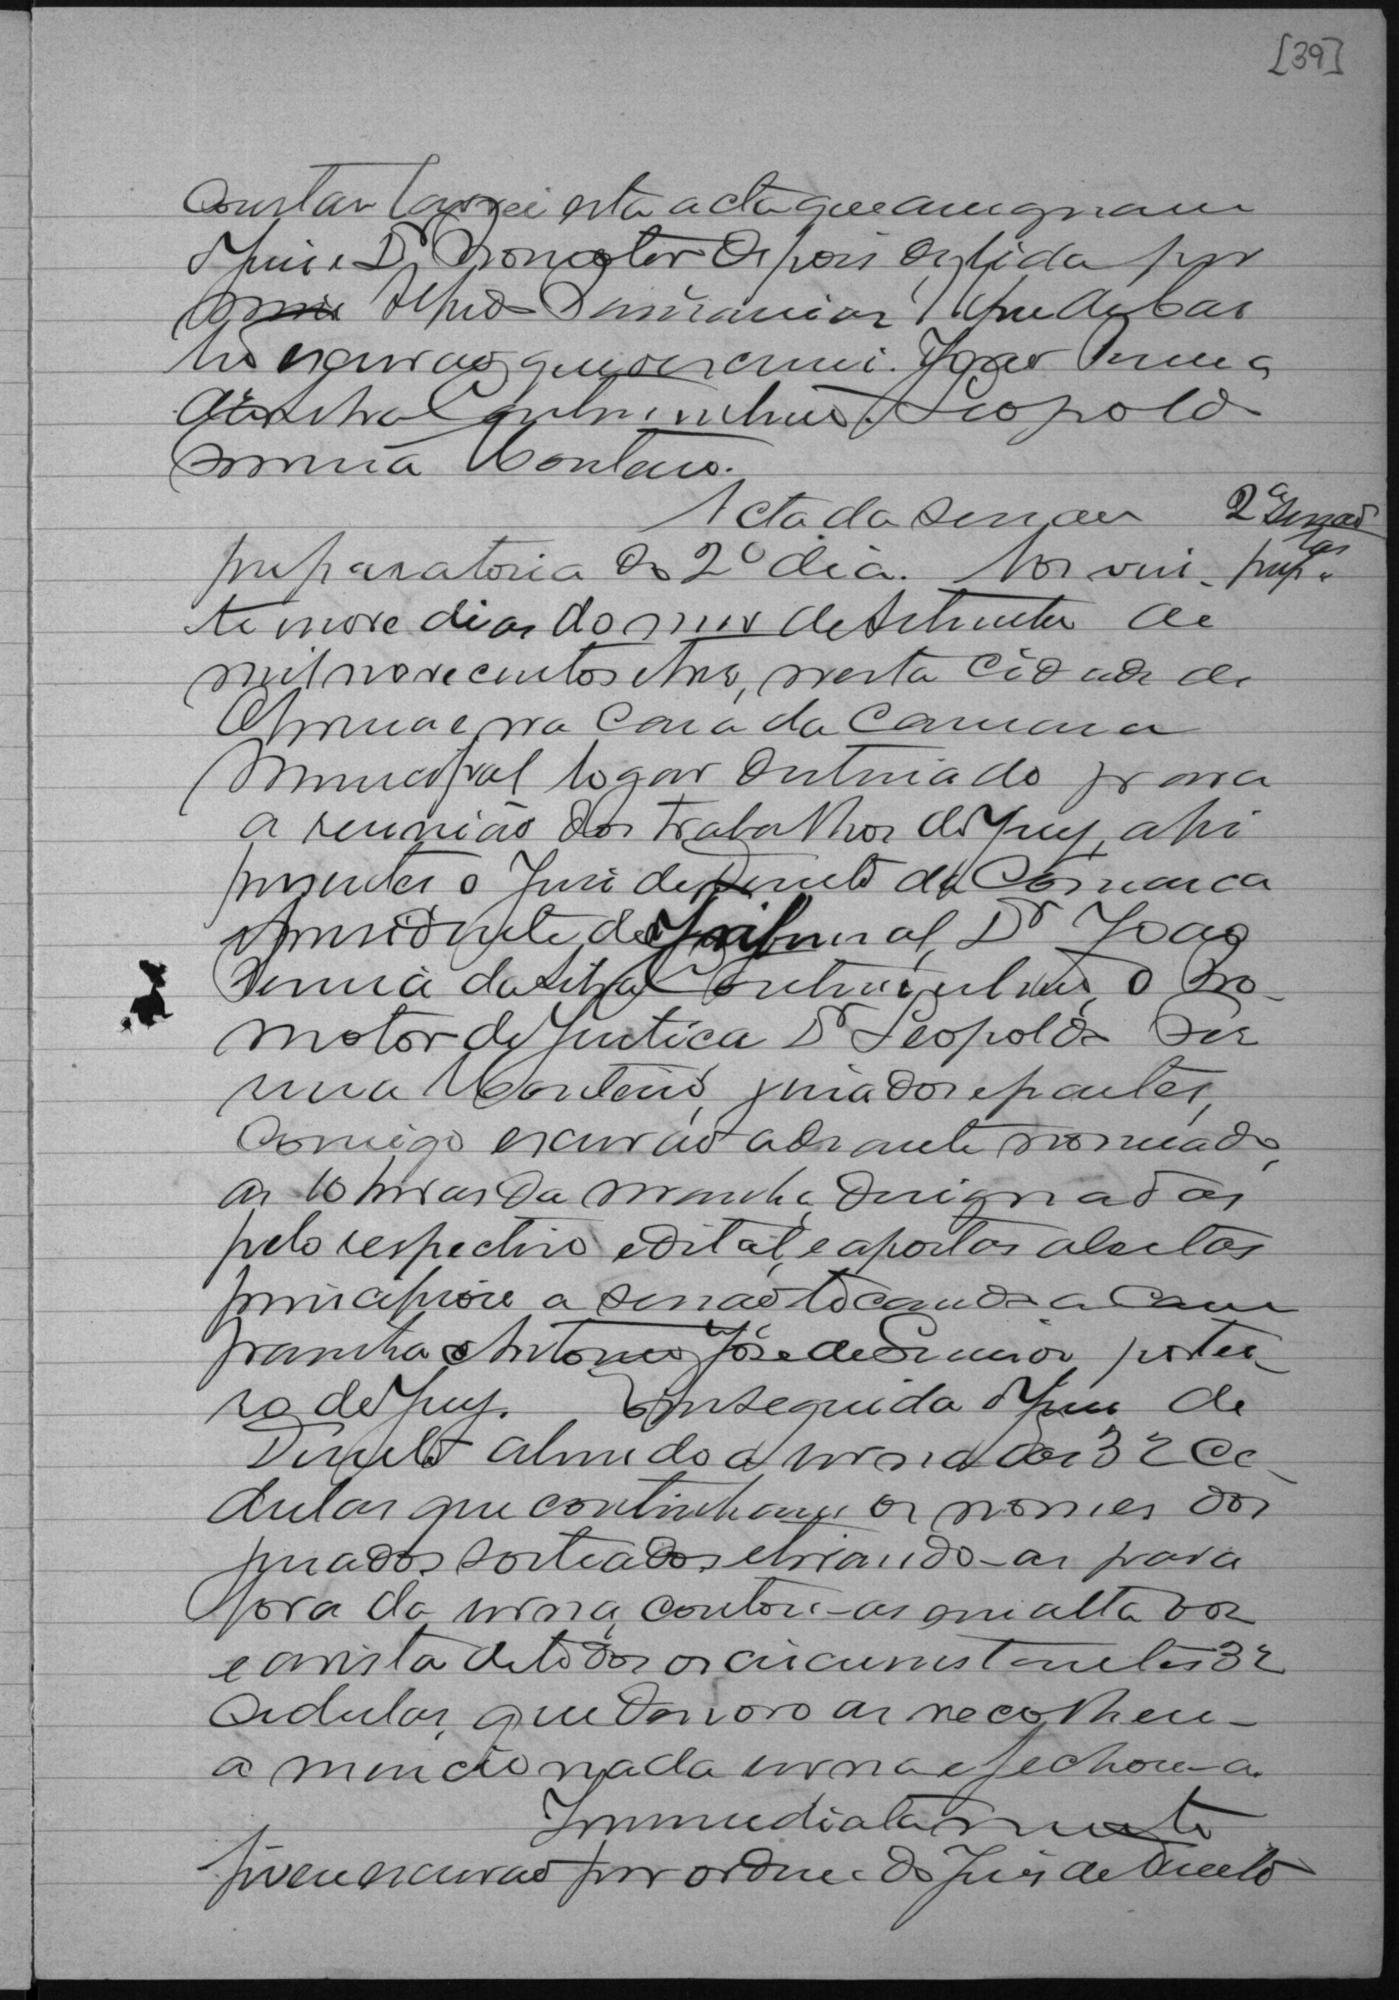 [39]
Constar lavrei esta acta que assignam
o Juiz e Dr Promotor depois de lida por
mim
escrivão que escrevi. João Pereira
da Silva Coutinho. Leopoldo
Pereira Monteiro.
Acta da sessão
2ª Sessão
prep.as
preparatoria do 2º dia. Aos vin-
te nove dias do mez de Setembro de
mil novecentos e tres, nesta Cidade de
e na Casa da Camara
Municipal logar destinado para
a reunião dos trabalhos do Jury, ahi
presentes o Juiz de Direito da Comarca
e presidente do Tribunal, Dr João
Pereira da Silva Coutinho, o Pro-
motor de Justica Dr Leopoldo Pe
reira Monteiro, jurados e partes,
Comigo escrivão adeante nomeado,
as 10 horas da manhã, designadas
pelo respectivo edital, e a portas abertas
principiou a sessão tocando a Cam
painha Antonio José de portei-
ro do Jury. Em seguida o Juiz de
Direito abrindo a urna das 32 Ce-
dulas que continham os nomes dos
jurados sorteados e tirando-as para
fora da urna, contou-as em alta voz
e a vista de todos os circumstantes 32
Cedulas, que de novo as recolheu-
a mencionada urna e fechou-a.
Immediatamente
fiz eu escrivão por ordem do Juiz de Direito